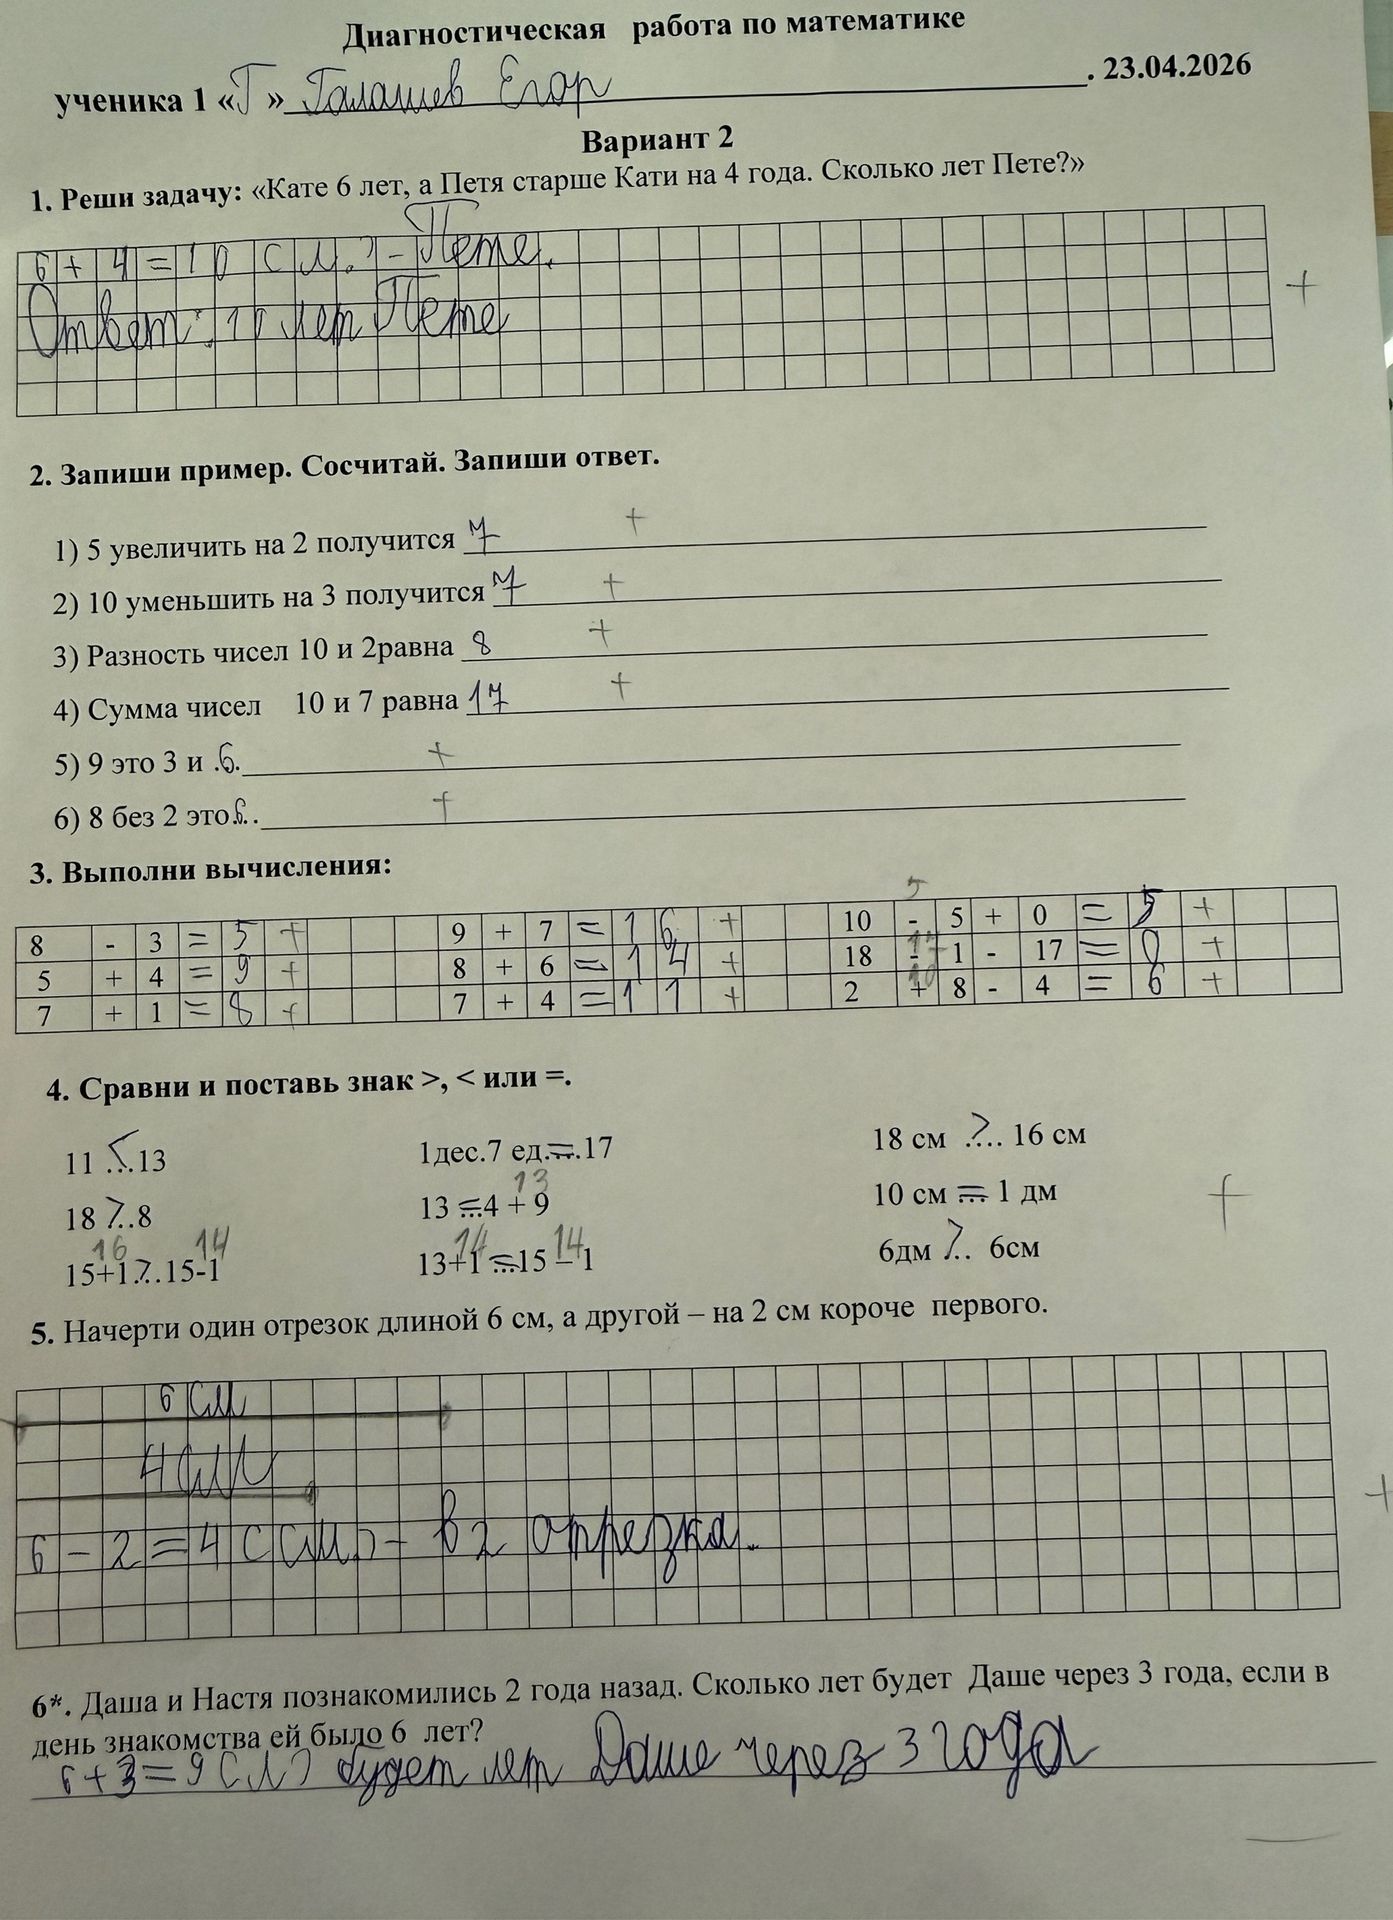 Диагностическая работа по математике
ученика 1 «Г» Галашев Егор . 23.04.2026
Вариант 2
1. Реши задачу: «Кате 6 лет, а Петя старше Кати на 4 года. Сколько лет Пете?»
6 + 4 = 10 (л.) - Пете.
Ответ: 10 лет Пете
+
2. Запиши пример. Сосчитай. Запиши ответ.
1) 5 увеличить на 2 получится 7 +
2) 10 уменьшить на 3 получится 7 +
3) Разность чисел 10 и 2равна 8 +
4) Сумма чисел 10 и 7 равна 17 +
5) 9 это 3 и .6. +
6) 8 без 2 это6.. +
3. Выполни вычисления:
5
8 - 3 = 5 + 9 + 7 = 16 + 10 - 5 + 0 = 5 +
17
5 + 4 = 9 + 8 + 6 = 14 + 18 - 1 - 17 = 0 +
10
7 + 1 = 8 + 7 + 4 = 11 + 2 + 8 - 4 = 6 +
4. Сравни и поставь знак >, < или =.
11 <...13 1дес.7 ед.=..17 18 см >.... 16 см
13
18 >..8 13 =...4 + 9 10 см =... 1 дм +
16 14 14 14
15+1>..15-1 13+1 =...15 – 1 6дм >.. 6см
5. Начерти один отрезок длиной 6 см, а другой – на 2 см короче первого.
6 см
4 см
6 - 2 = 4 (см.) - в 2 отрезка.
+
6*. Даша и Настя познакомились 2 года назад. Сколько лет будет Даше через 3 года, если в
день знакомства ей было 6 лет?
6 + 3 = 9 (л) будет лет Даше через 3 года